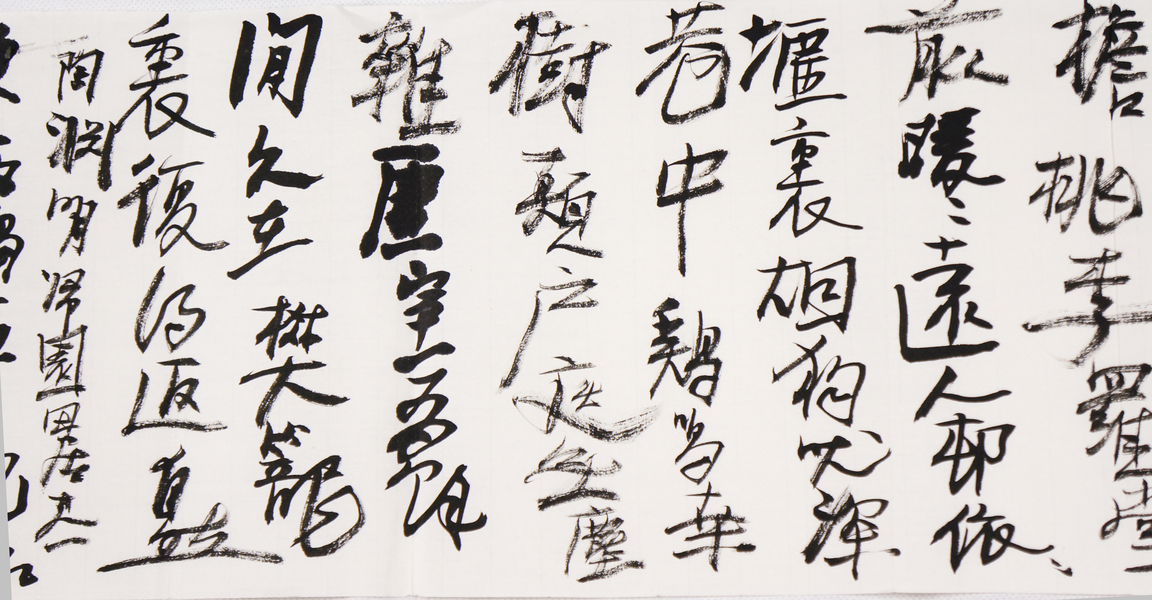 檐桃李羅堂
前暖々遠人邨依々
墟裏烟狗吠深
巷中鷄鳴桑
樹顛户庭無塵
雜虛室有餘
閒久在樊籠
裏復得返自然
陶淵明歸園田居其一